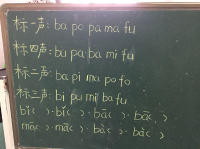 标一声: ba po pa ma fu
标四声: bu pa ba mi fu
标二声: ba pi ma po fo
标三声: bi pu mi ba fu
bǐ( ) bí( ) bāc ) bǎ( )
mā( ) mǎ( ) bà( ) bà( )